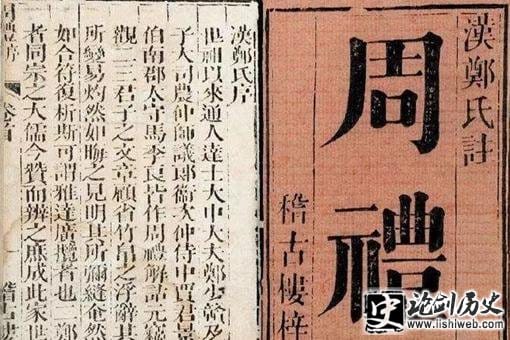 漢鄭氏註
周禮
稽古樓梓
漢鄭氏序
世祖以來通人達士大中大夫鄭少贛及
子大司農仲師議郎衛次仲侍中賈君景
伯南郡太守馬季長皆作周禮解詁元竊
觀二三君子之文章顧省竹帛之浮辭其
所變易灼然如晦之見明其所彌縫奄然
如合符復析斯可謂雅達廣攬者也二鄭
者同宗之大儒今贊而辨之庶成此家世
周禮序 卷首 稽古樓
史 论剑历史
www.lishiweb.com